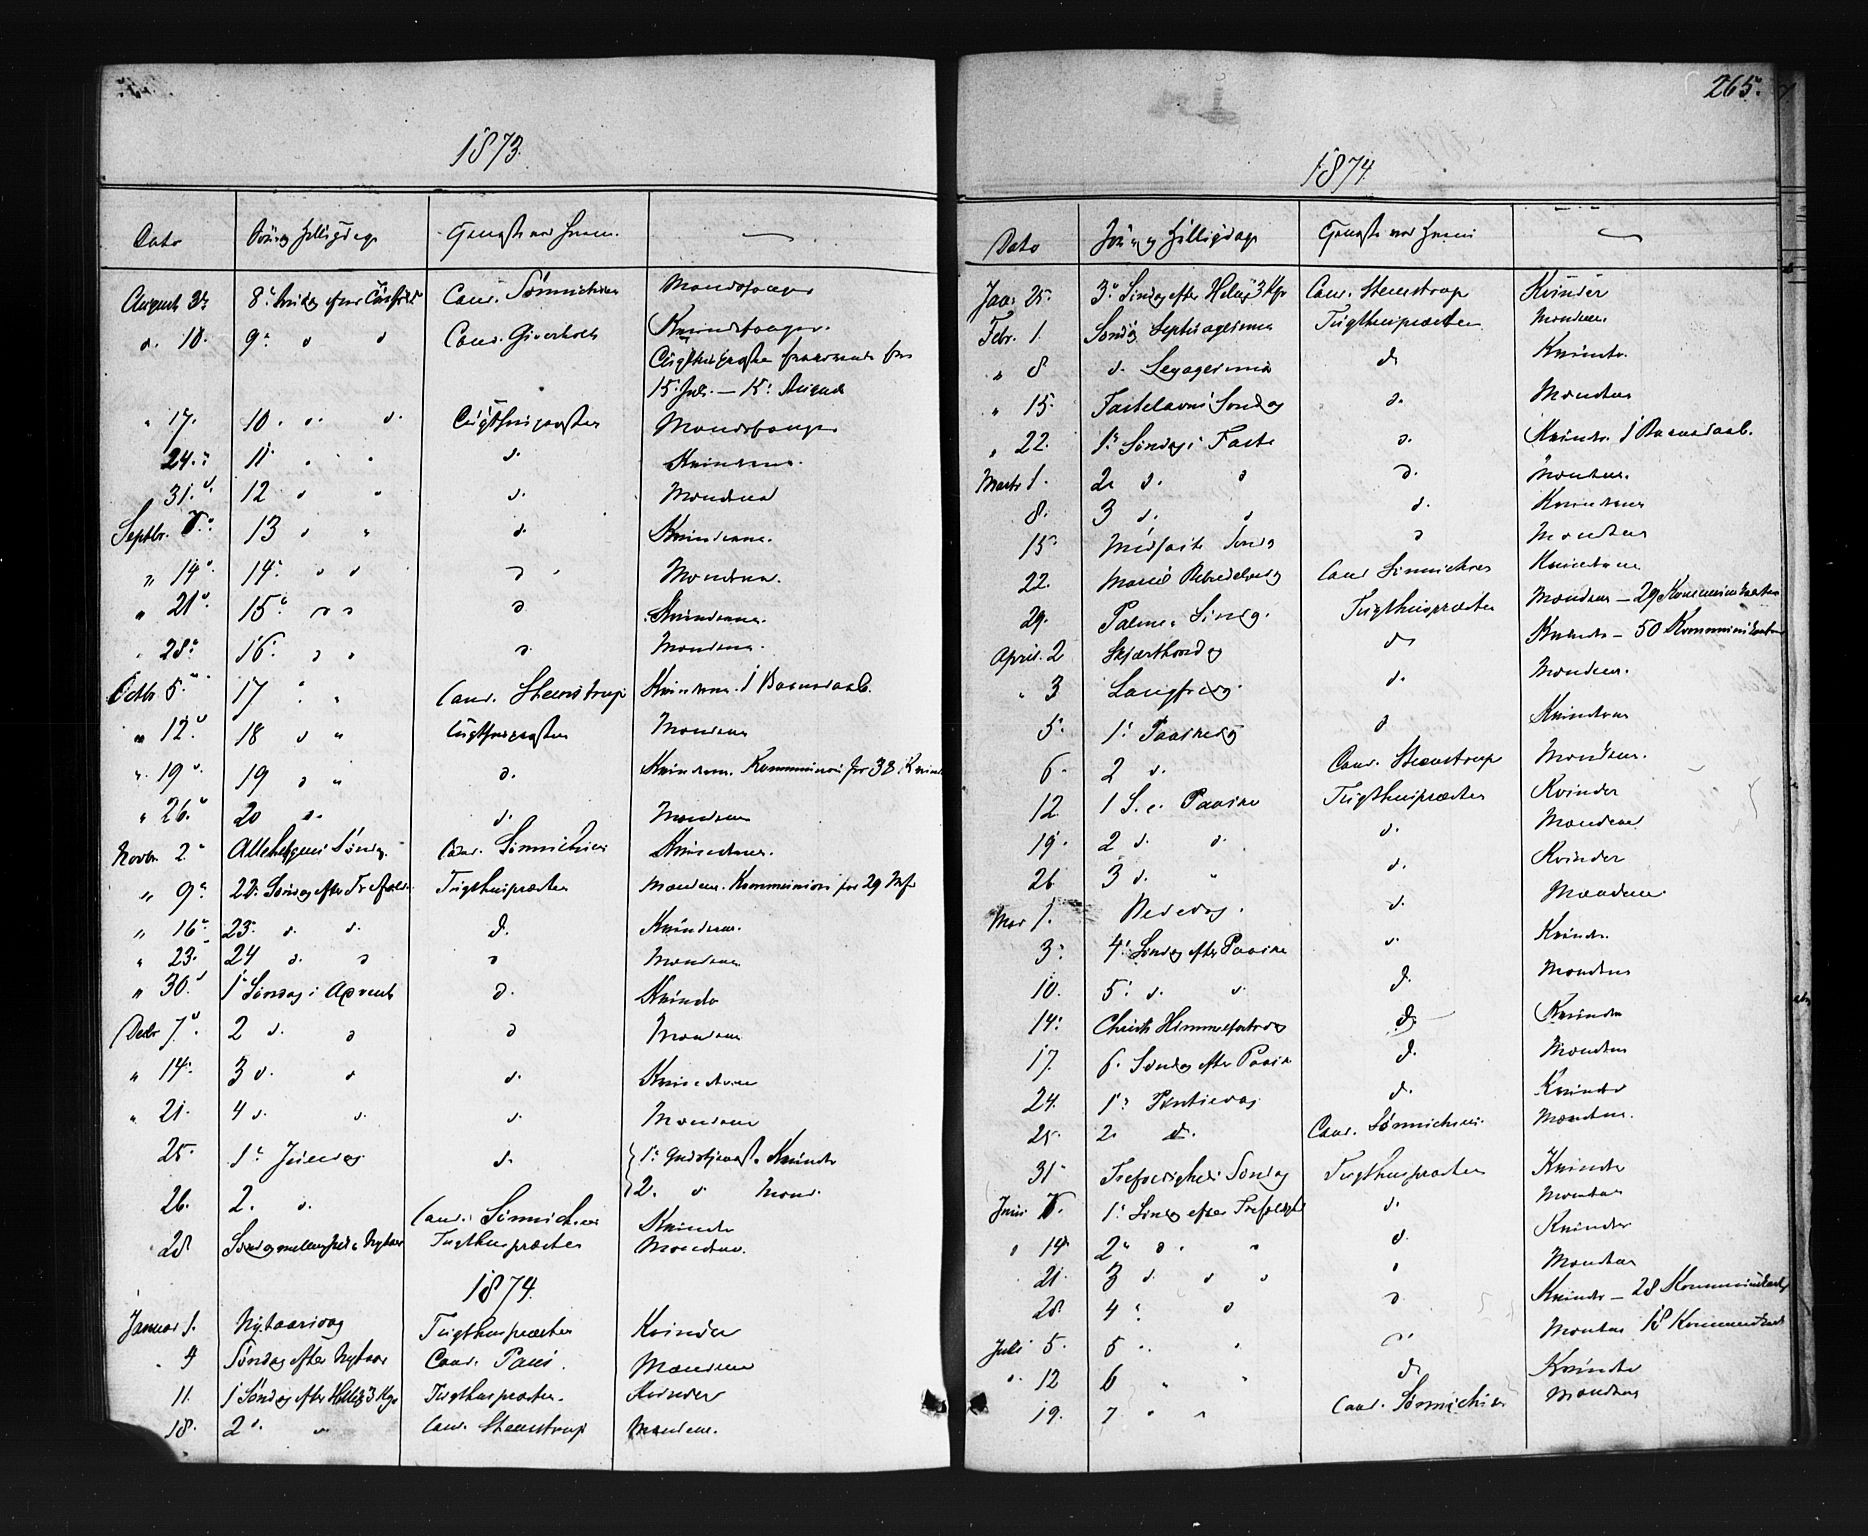 265.
1873.
Dato
August 3die 8de Cand. Sønnichsen Mandsfanger
d. 10. 9de d d Cand. Kvindefanger.
15. — 15. August
" 17. 10. d. d. Tugthuspræsten Mandsfanger
24. 11 d. Kvinderne.
31. 12 d. Mændene
Septbr. 7. 13 d. Kvinderne.
" 14. 14. d d d Mændene.
" 21. 15. d d d Kvinderne.
28. 16. d d. Mændene.
Octbr 5. 17 Cand. Steenstrup Kvinderne. 1 Barnedaab.
" 12. 18 d " Tugthuspræsten Mændene
" 19. 19 d " d. Kvinderne. Kommunion for 38 Kvind
" 26. 20 d. d. Mændene
Novbr. 2 Allehelgens Søndag. Cand. Sønnichsen Kvinderne.
" 9. 22. Søndag efter Trefold. Tugthuspræsten Mændene. Kommunion for 29 Mfr
" 16. 23. d. d. d. Kvinderne.
" 23. 24 d. d d Mændene
" 30. 1 Søndag i Advent d. Kvinder
Decbr 7. 2 d. d d Mændene
" 14. 3 d. d d. Kvinderne
" 21. 4 d. d. d. Mændene
25. 1. Juledag d. 1. Gudstjeneste Kvinder
2. d Mænd.
26. 2. d. Cand. Sønnichsen Kvinder
28 Søndag mellem Juul & Nytaar Tugthuspræsten Mændene.
1874.
Januar 1. Nytaarsdag Tugthuspræsten Kvinder
" 4 Søndag efter Nytaar Cand. Mændene
11. 1 Søndag efter Hellig 3 Kgr Tugthuspræsten. Kvinder
18. 2 d. " Cand. Steenstrup Mændene.
1874
Dato
Jan. 25. 3. Søndag efter Hellig 3 Kgr Cand. Steenstrup Kvinder
Febr. 1. Søndag Septuagesima Tugthuspræsten Mændene.
" 8 d. Sexagesima d. Kvinder.
" 15. Fastelavns Søndag d. Mændene
" 22. 1. Søndag i Faste d. Kvinder. 1 Barnedaab.
Marts 1. 2 d. d d. Mændene.
8. 3 d. d d. Kvinderne
15. Midfaste Søndag d Mændene
22. Mariæ Bebudelsesdag Cand Sønnichsen Kvinderne
29. Palme Søndag. Tugthuspræsten Mændene — 29 Kommunikanter
April. 2 Skjærthorsdag d. Kvinder — 50 Kommunikanter
" 3 Langfredag d. Mændene.
5. 1. Paaskedag d Kvinderne
6. 2 d. Cand. Steenstrup Mændene.
12. 1 S. e. Paaske Tugthuspræsten Kvinder
19. 2 d. d. d. Mændene
26 3 d. " d. Kvinder
Mai 1. Bededag. d. Mændene
3. 4. Søndag efter Paaske d. Kvinder.
10. 5. d. d. d. Mændene
14. Christi Himmelfartsdag d. Kvinder
17. 6. Søndag efter Paaske d. Mændene
24. 1. Pintsedag d. Kvinder
25. 2 d. Cand. Sønnichsen. Mændene.
31. Trefoldigheds Søndag Tugthuspræsten Kvinder
Juni 7. 1. Søndag efter Trefoldighed d. Mændene
" 14. 2. d. " d. Kvinder
21. 3 d. d d " Mændene
28. 4 " d d Kvinder — 28 Kommunikanter
Juli 5. 5 " " d Mændene 18 Kommunikanter
" 12 6 " " d. Kvinder
19. 7 " " Cand. Sønnichsen Mændene